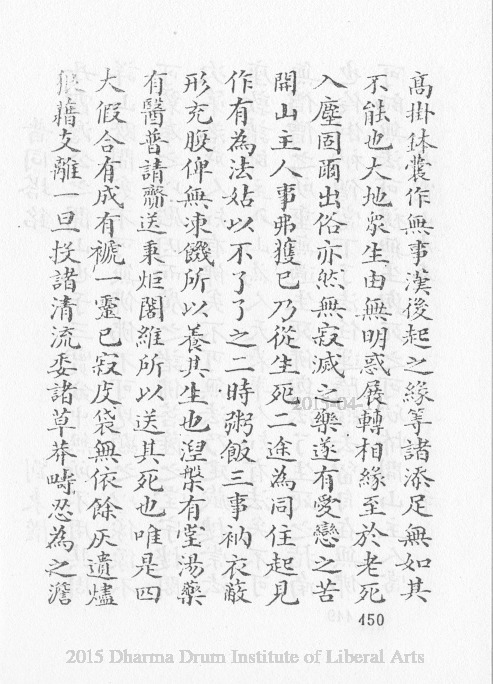 高掛鉢囊作無事漢後起之緣等諸添足無如其
不能也大地眾生由無明惑展轉相緣至於老死
入塵固爾出俗亦然無寂滅之樂遂有愛戀之苦
開山主人事弗獲已乃從生死二途為同住起見
作有為法姑以不了了之二時粥飯三事衲衣蔽
形充腹俾無凍饑所以養其生也涅槃有堂湯藥
有醫普請齋送秉炬闍維所以送其死也唯是四
大假合有成有褫一靈已寂皮袋無依餘灰遺燼
狼藉支離一旦投諸清流委諸草莽疇忍為之澹
450
2015 Dharma Drum Institute of Liberal Arts